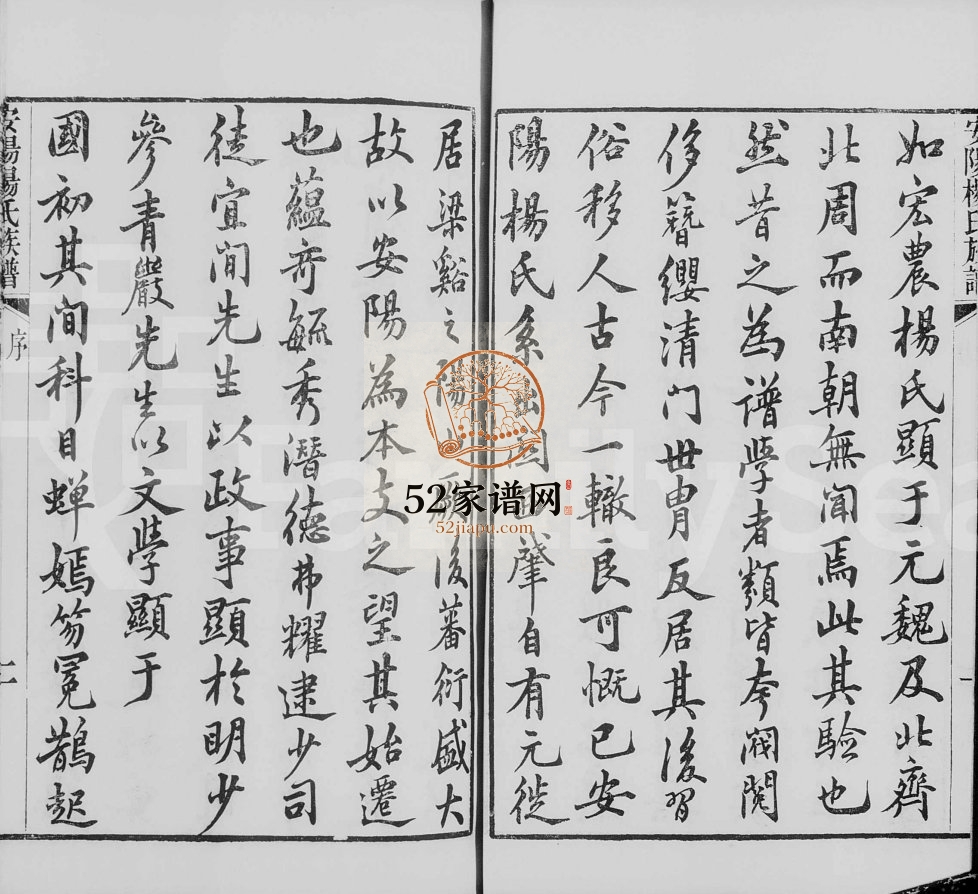 安陽楊氏族譜
一
如宏農楊氏顯于元魏及北齊
北周而南朝無聞焉此其驗也
然昔之為譜學者類皆夸閥閱
侈簪纓清門世胄反居其後習
俗移人古今一轍良可慨已安
陽楊氏系出關西肇自有元徙
居梁谿之陽山厥後蕃衍盛大
故以安陽為本支之望其始遷
也蘊奇毓秀潛德弗耀逮少司
徒宜閒先生以政事顯於明少
參青巖先生以文學顯于
國初其間科目蟬嫣笏冕鵲起
安陽楊氏族譜
序
52家谱网
52jiapu.com
FamilySea